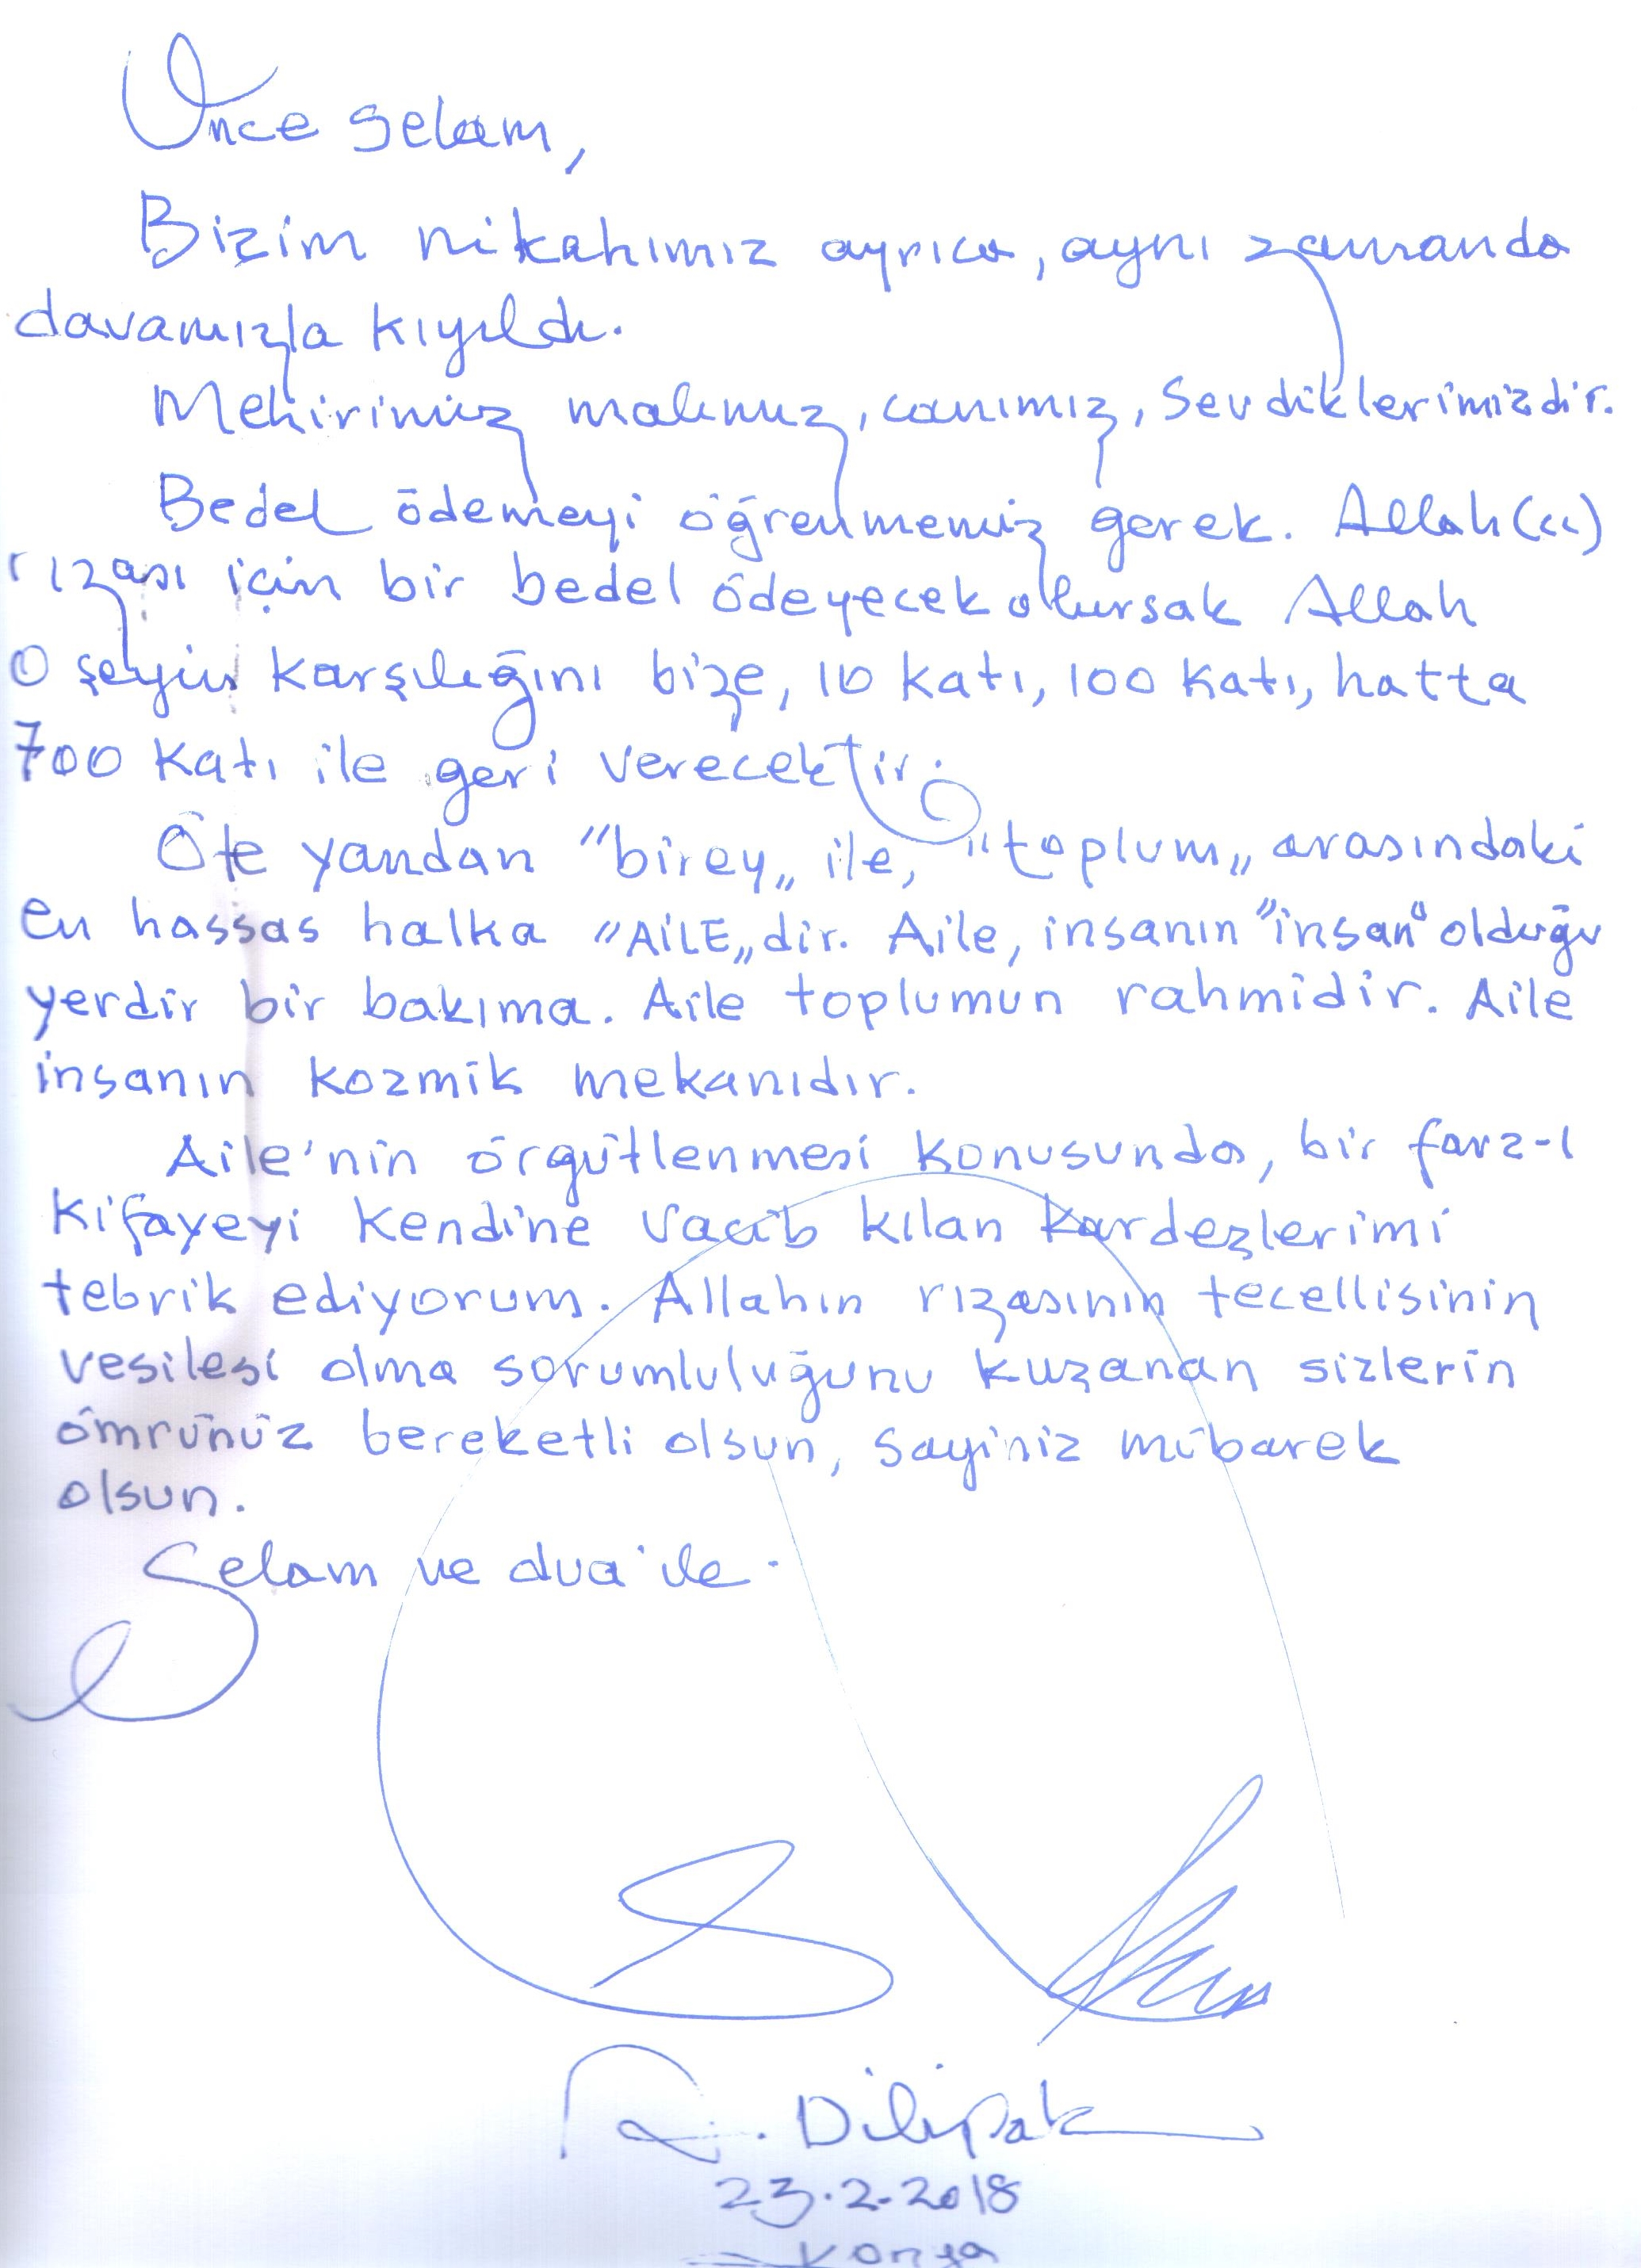 Önce selam,
Bizim nikahımız ayrıca, aynı zamanda
davamızla kıyıldı.
Mehirimiz malımız, canımız, sevdiklerimizdir.
Bedel ödemeyi öğrenmemiz gerek. Allah (cc)
rızası için bir bedel ödeyecek olursak Allah
O şeyin karşılığını bize, 10 katı, 100 katı, hatta
700 katı ile geri verecektir.
Öte yandan "birey„ ile, "toplum„ arasındaki
en hassas halka "AİLE„dir. Aile, insanın "insan" olduğu
yerdir bir bakıma. Aile toplumun rahmidir. Aile
insanın kozmik mekanıdır.
Aile'nin örgütlenmesi konusunda, bir farz-ı
kifayeyi kendine vacib kılan kardeşlerimi
tebrik ediyorum. Allahın rızasının tecellisinin
vesilesi olma sorumluluğunu kuzanan sizlerin
ömrünüz bereketli olsun, sayiniz mübarek
olsun.
Selam ve dua ile.
Dilipak
23.2.2018
Konya